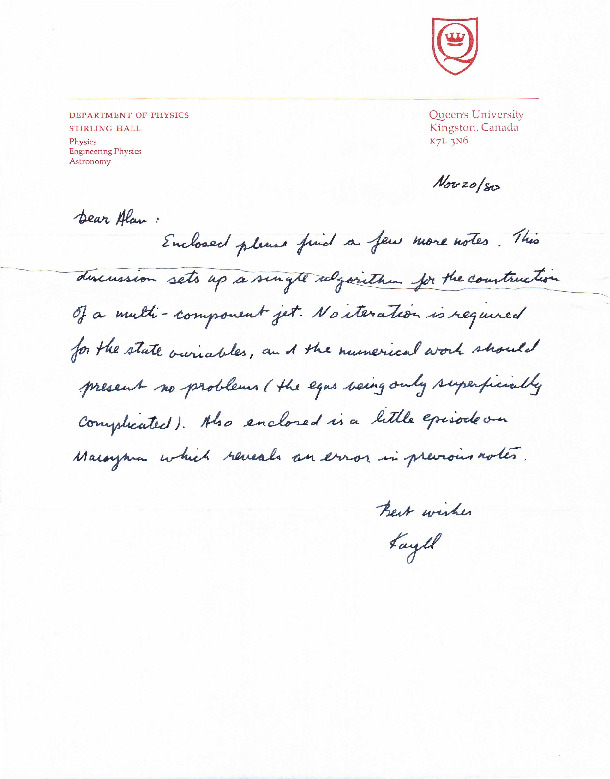 Q
DEPARTMENT OF PHYSICS
STIRLING HALL
Physics
Engineering Physics
Astronomy
Queen's University
Kingston, Canada
K7L 3N6
Nov 20/80
Dear Alan :
Enclosed please find a few more notes. This
discussion sets up a single algorithm for the construction
of a multi-component jet. No iteration is required
for the state variables, and the numerical work should
present no problems (the eqns being only superficially
complicated). Also enclosed is a little episode on
Macsyma which reveals an error in previous notes.
Best wishes
Kayll